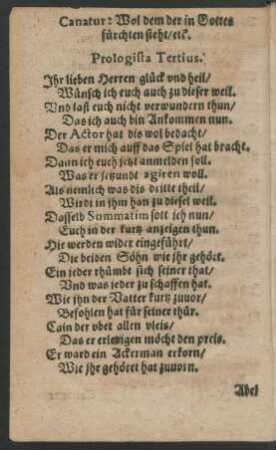 Canatur: Wol dem der in Gottes
fürchten steht/etc.
Prologista Tertius.
Ihr lieben Herren glück vnd heil/
Wünsch ich euch auch zu dieser weil.
Vnd last euch nicht verwundern thun/
Das ich auch bin Ankommen nun.
Der Actor hat dis wol bedacht/
Das er mich auff das Spiel hat bracht.
Dann ich euch jetzt anmelden soll.
Was er jetzundt agiren woll.
Als nemlich was dis dritte theil/
Wirdt in jhm han zu diesel weil.
Dasselb Summatim soll ich nun/
Euch in der kurtz anzeigen thun.
Hie werden wider eingeführt/
Die beiden Söhn wie jhr gehört.
Ein jeder rhümbt sich seiner that/
Vnd was jeder zu schaffen hat.
Wie jhn der Vatter kurtz zuuor/
Befohlen hat für seiner thür.
Cain der vbet allen vleis/
Das er erlangen möcht den preis.
Er ward ein Ackerman erkorn/
Wie jhr gehöret hat zuuorn.
Abel